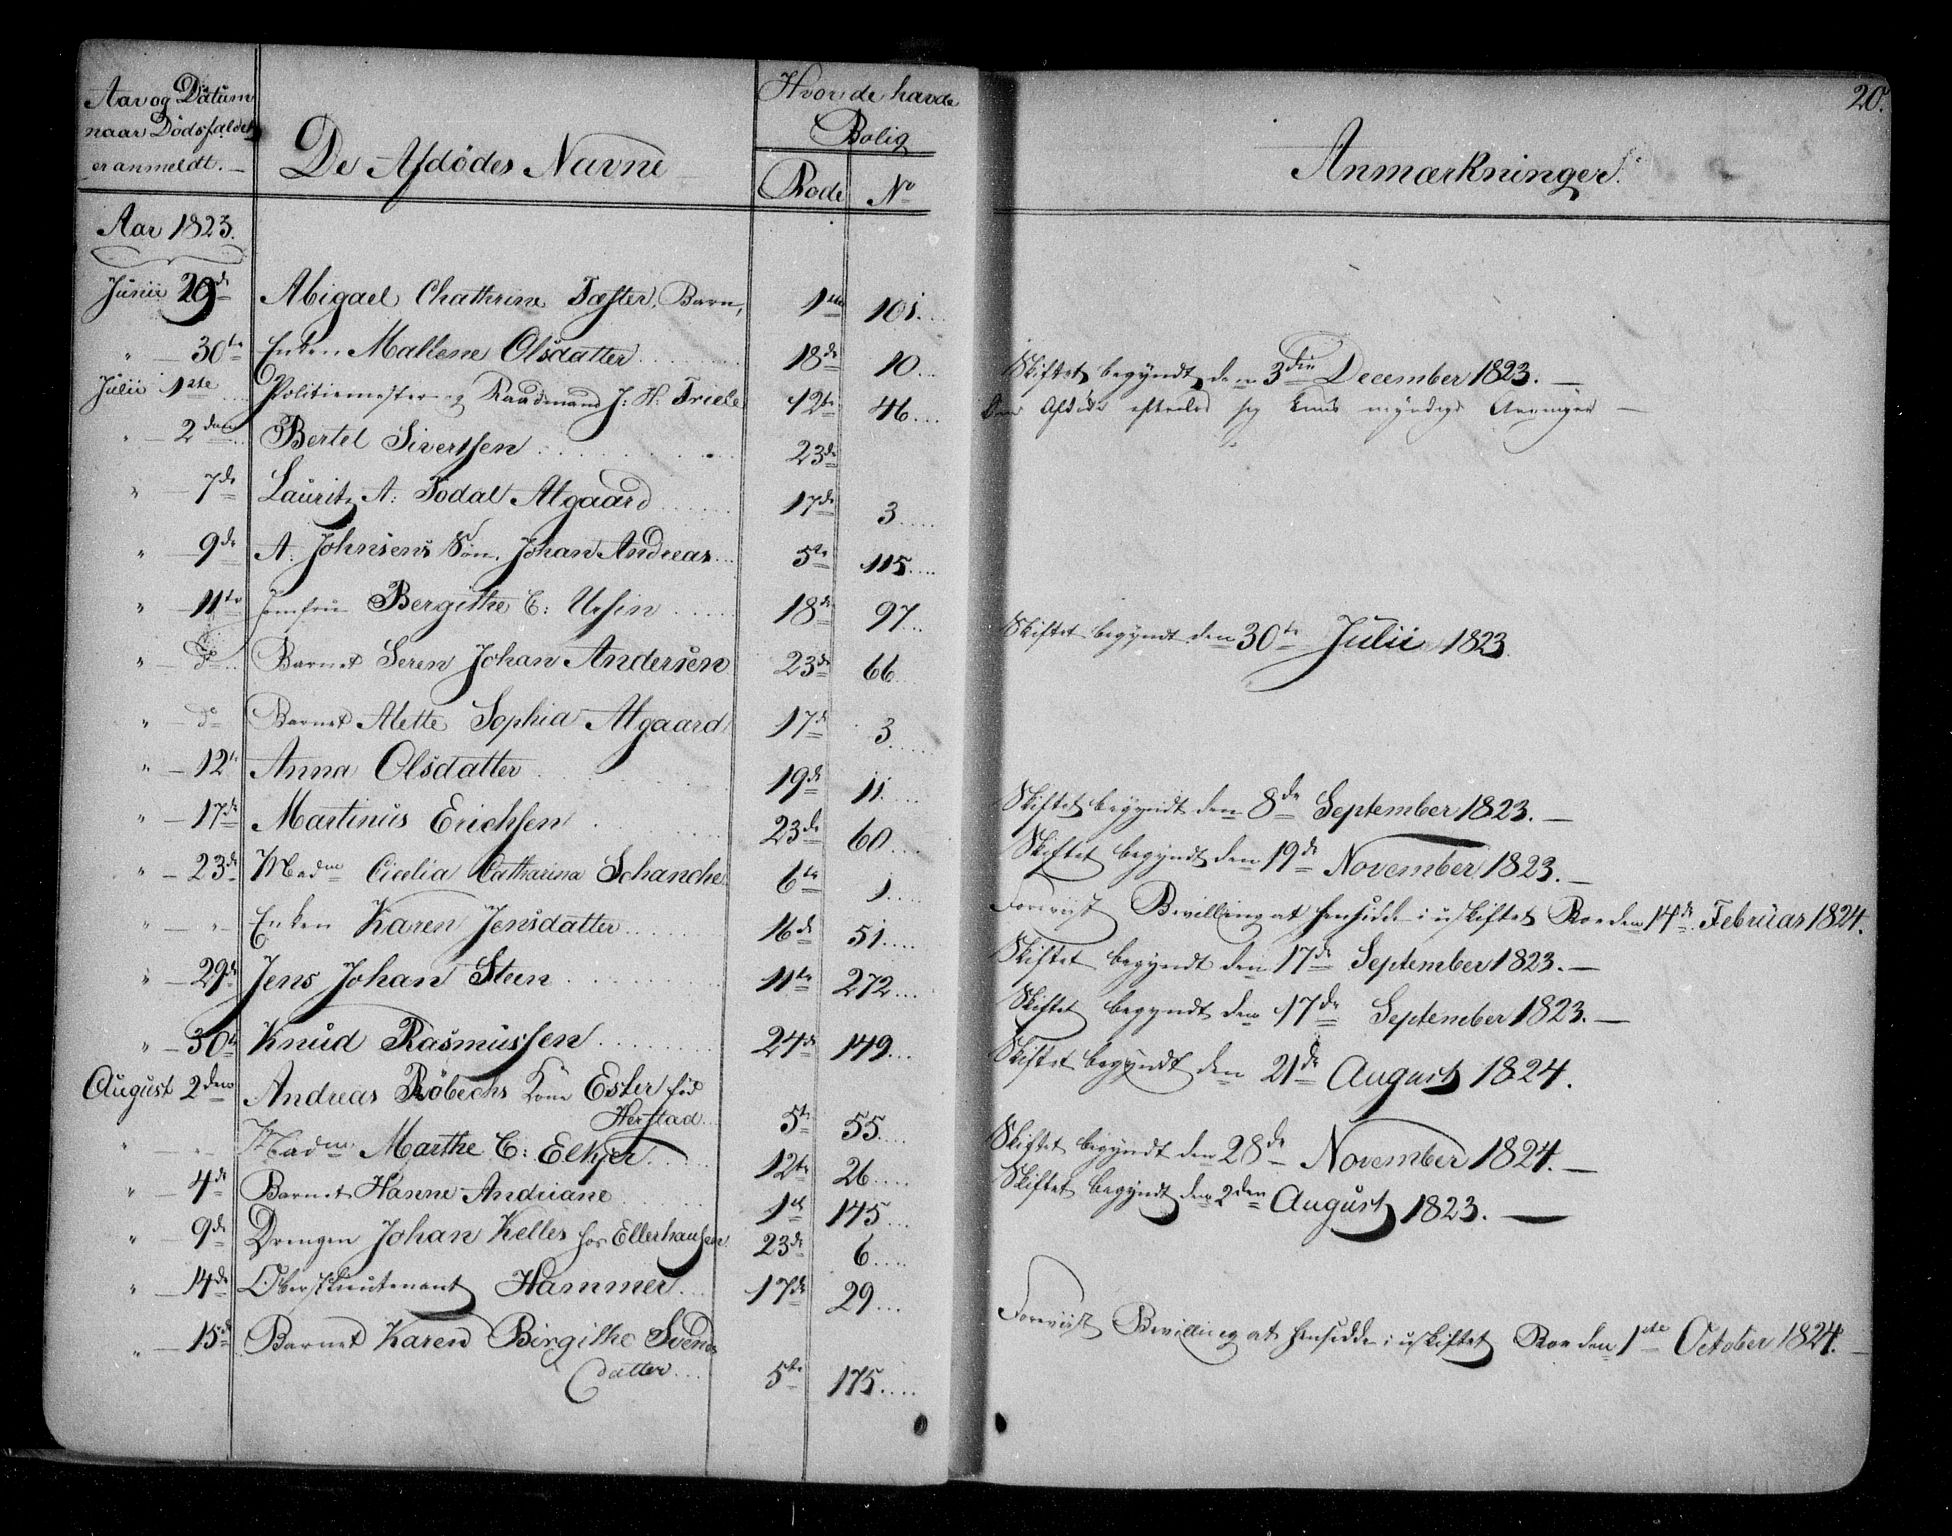 20.
Aar og Datum
naar Dødsfaldet
er anmeldt. —
De Afdødes Navne
Hvor de havde
Bolig
Rode No
Anmærkninger.
Aar 1823.
Junii 29de Abigael Chathrine Fæster, Barn, 1ste 101.
" — 30te Enken Mallene Olsdatter 18de 10. Skiftet begyndt den 3die December 1823. —
Julii 1ste Politiemester og Raadmand J: H: Triele 12te 46. Den Afdøde efterlod sig kuns myndige Arvinger —
" — 2den Bertel Sivertsen 23de
" — 7de Lauritz A: Todal Algaard 17de 3.
" — 9de A. Johnsens Søn, Johan Andreas 5te 115.
" — 11te Jomfru Bergithe C: Ursin 18de 97. Skiftet begyndt den 30te Julii 1823.
" — do Barnet Seren Johan Andersen 23de 66.
" — do Barnet Alette Sophia Algaard 17de 3.
" — 12te Anna Olsdatter 19de 11. Skiftet begyndt den 8de September 1823. —
" — 17de Martinus Erichsen 23de 60. Skiftet begyndt den 19de November 1823. —
" — 23de Madme Cicelia Catharina Schanche 6te 1. Foreviist Bevilling at hensidde i uskiftet Boe den 14de Februar 1824.
" — " — Enken Karen Jensdatter 16de 51. Skiftet begyndt den 17de September 1823. —
" — 29de Jens Johan Steen 11te 272. Skiftet begyndt den 17de September 1823. —
" — 30te Knud Rasmussen 24de 149. Skiftet begyndt den 21de August 1824.
August 2den Andreas Röbechs Kone Ester fød
Herstad 5te 55. Skiftet begyndt den 28de November 1824. —
" Madme Marthe C: Elkjer 12te 26. Skiftet begyndt den 2den August 1823. —
" — 4de Barnet Hanne Andriane 1ste 145.
" — 9de Drengen Johan Kelles hos Ellerhausen 23de 6.
" — 14de Oberstlieutenant Hammer 17de 29. Foreviist Bevilling at hensidde i uskiftet Boe den 1ste October 1824. —
" — 15de Barnet Karen Birgithe Svends
datter 5te 175.